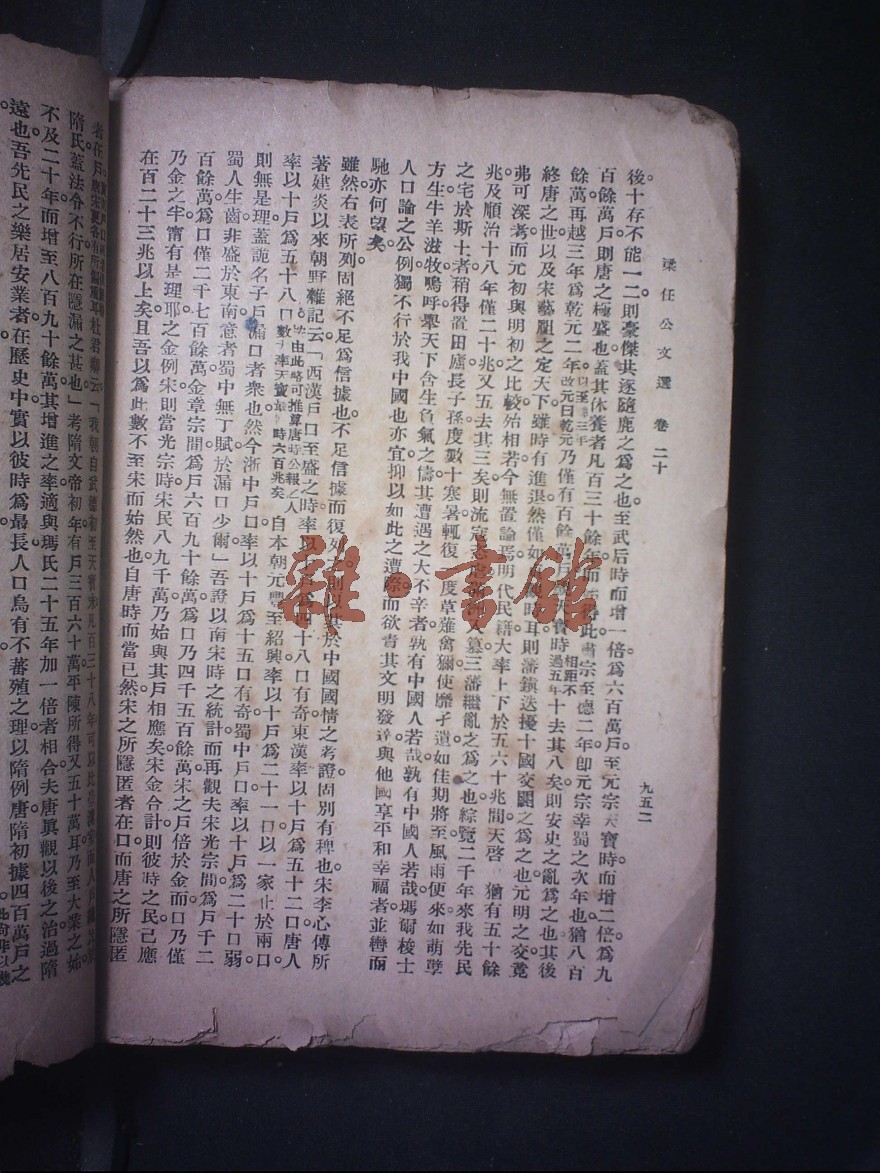 梁任公文選 卷二十
九五二
後十存不能一二則豪傑共逐隨鹿之爲之也至武后時而增一倍爲六百萬戶至元宗天寶時而增二倍爲九
百餘萬戶則唐之極盛也蓋其休養者凡百三十餘年而始得此肅宗至德二年卽元宗幸蜀之次年也猶八百
餘萬再越三年爲乾元二年改元曰乾元乃僅有百餘萬戶天寶時相距不過五年十去其八矣則安史之亂爲之也其後
終唐之世以及宋藝祖之定天下雖時有進退然僅如時耳則藩鎭迭擾十國交鬨之爲之也元明之交覽
弗可深考而元初與明初之比較始相若今無置論焉明代民籍大率上下於五六十兆間天啓 猶有五十餘
兆及順治十八年僅二十兆又五去其三矣則流寇三藩繼亂之爲之也綜覽二千年來我先民
之宅於斯土者稍得置田廬長子孫度數十寒暑輒復一度草薙禽獮使靡孑遺如佳期將至風雨便來如萌孽
方生牛羊滋牧嗚呼舉天下含生負氣之儔其遭遇之大不辛者孰有中國人若哉孰有中國人若哉瑪爾梭士
人口論之公例獨不行於我中國也亦宜抑以如此之遭際而欲責其文明發達與他國享平和幸福者並轡而
馳亦何望矣
雖然右表所列固絕不足爲信據也不足信據而復列之則以其於中國國情之考證固別有稗也宋李心傳所
著建炎以來朝野雜記云「西漢戶口至盛之時率以十戶爲四十八口有奇東漢率以十戶爲五十二口唐人
率以十戶爲五十八口由此略可推算唐時公報之人數率天寶時六百兆矣自本朝元豐至紹興率以十戶爲二十一口以一家止於兩口
則無是理蓋詭名子戶漏口者衆也然今浙中戶口率以十戶爲十五口有奇蜀中戶口率以十戶爲二十口弱
蜀人生齒非盛於東南意者蜀中無丁賦於漏口少爾」吾證以南宋時之統計而再觀夫宋光宗間爲戶千二
百餘萬爲口僅二千七百餘萬金章宗間爲戶六百九十餘萬爲口乃四千五百餘萬宋之戶倍於金而口乃僅
乃金之半甯有是理耶之金例宋則當光宗時宋民八九千萬乃始與其戶相應矣宋金合計則彼時之民已應
在百二十三兆以上矣且吾以爲此數不至宋而始然也自唐時而當已然宋之所隱匿者在口而唐之所隱匿
者在戶杜君卿云「我朝自武德初至天寶末凡百三十八年可以比
隋氏蓋法令不行所在隱漏之甚也」考隋文帝初年有戶三百六十萬平陳所得又五十萬耳乃至大業之始
不及二十年而增至八百九十餘萬其增進之率適與瑪氏二十五年加一倍者相合夫唐眞觀以後之治過隋
遠也吾先民之樂居安業者在歷史中實以彼時爲最長人口烏有不蕃殖之理以隋例唐隋初據四百萬戶之